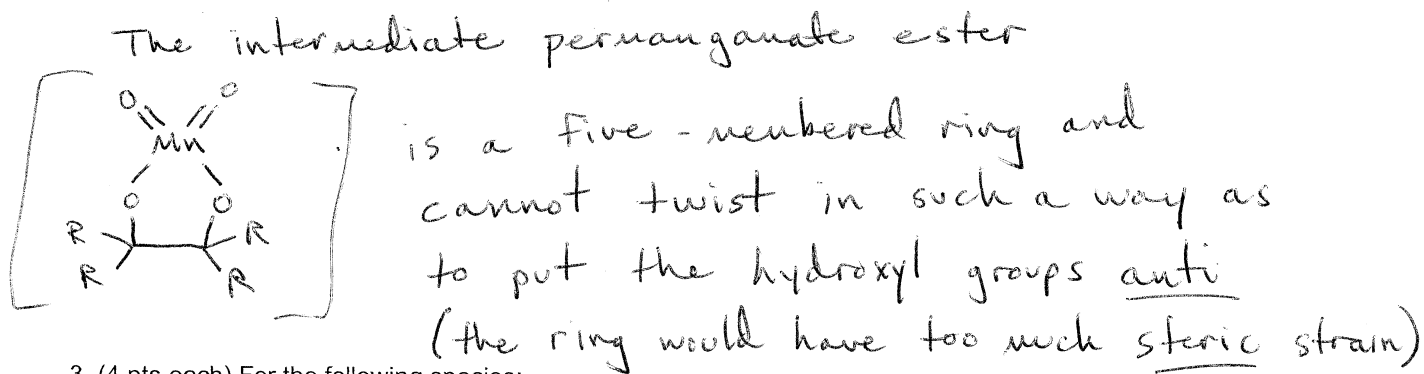 The intermediate permanganate ester
O O
Mn
O O
R R
R R
is a five-membered ring and
cannot twist in such a way as
to put the hydroxyl groups anti
(the ring would have too much steric strain)
3. (4 pts each) For the following species: